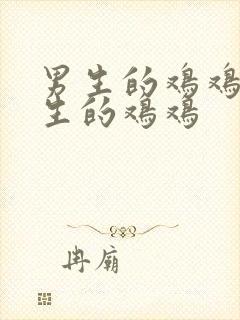 男生的鸡鸡
生的鸡鸡
冉庙